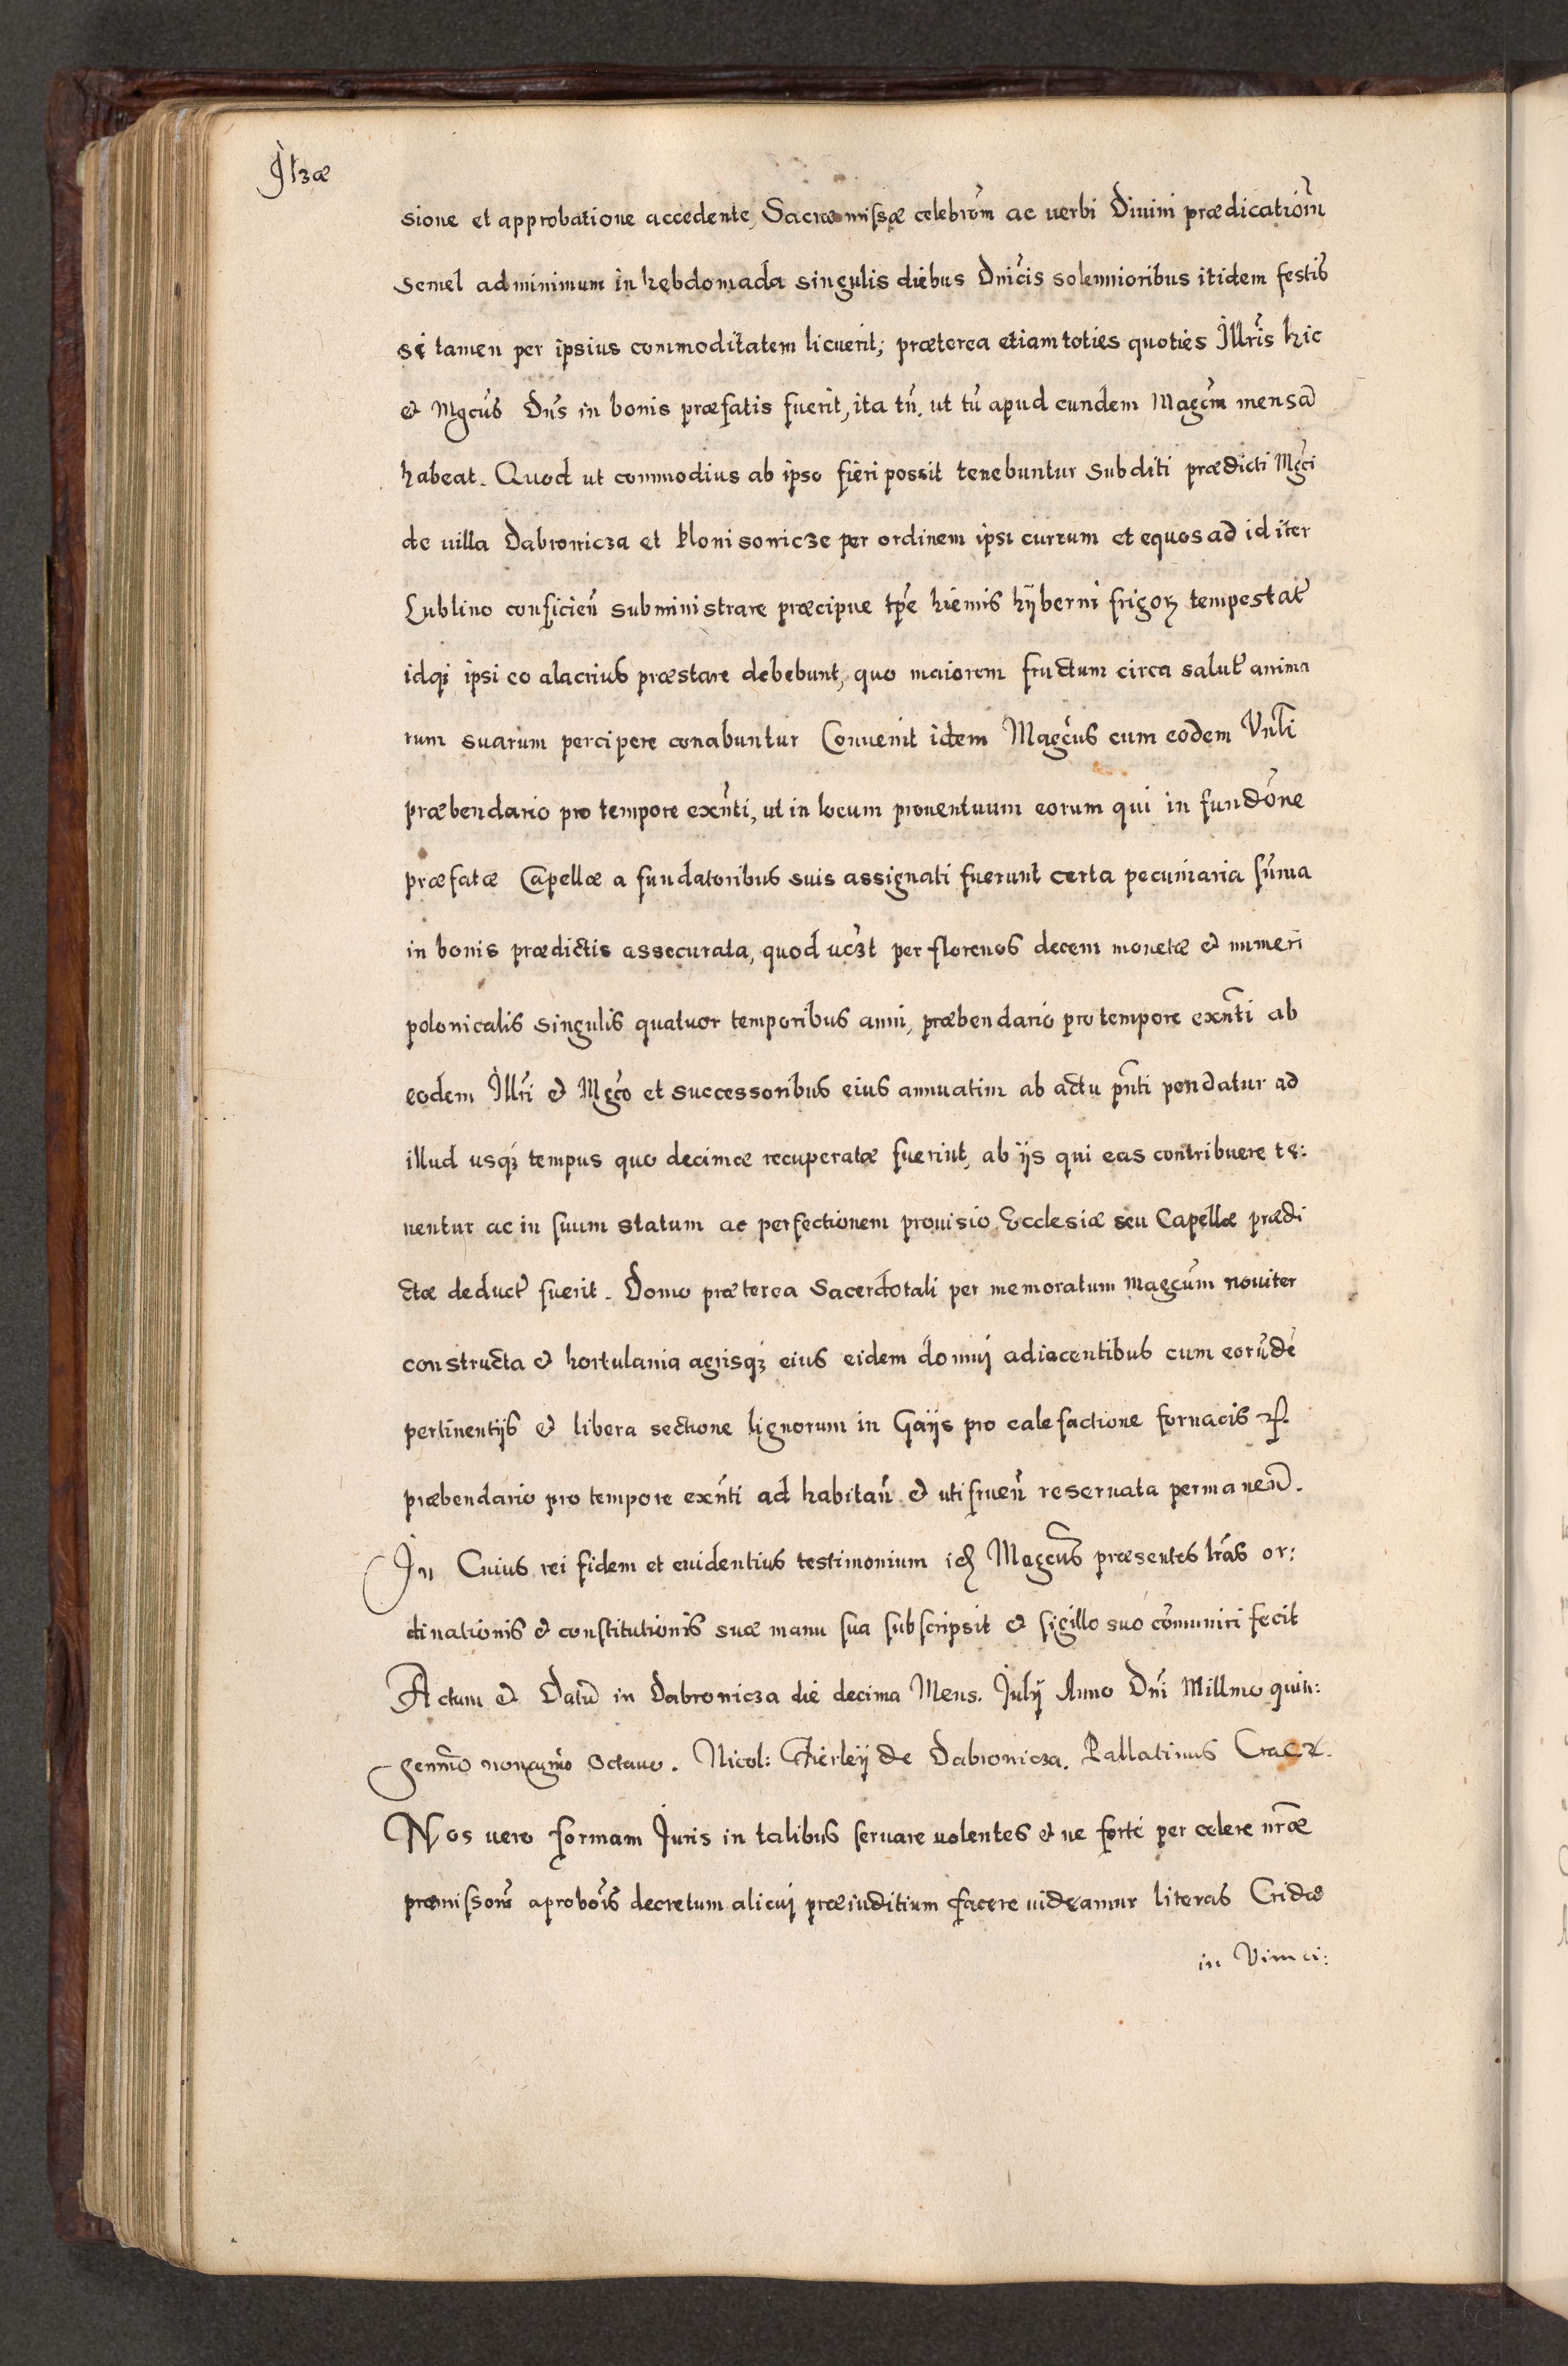 Ilzæ
sione et approbatione accedente, Sacræ missæ celebrōm ac uerbi Diuini prædicatiōm
semel ad minimum in hebdomada singulis diebus Dnīcis solennioribus itidem festis
si tamen per ipsius commoditatem licuerit; præterea etiam toties quoties Illrīs hic
et Mgcūs Dn̄s in bonis præfatis fuerit, ita tn̄, ut tū apud eundem Magcūm mensā
habeat. Quod ut commodius ab ipso fieri possit tenebuntur subditi prædicti Mgc̄i
de uilla Dabrowicza et Klonisowicze per ordinem ipsi currum et equos ad id iter
Lublino conficien̄ subministrare præcipue tp̄e hiemis hÿberni frigorꝝ tempestat̄
idqꝫ ipsi eo alacrius præstare debebunt, quo maiorem fructum circa salut̄ anima
rum suarum percipere conabuntur Conuenit idem Magcūs cum eodem Vnl̄i
præbendario pro tempore exn̄ti, ut in locum prouentuum eorum qui in fundōne
præfatæ Capellæ a fundatoribus suis assignati fuerunt certa pecuniaria sūma
in bonis prædictis assecurata, quod uczt per florenos decem monetæ et numeri
polonicalis singulis quatuor temporibus anni, præbendario pro tempore exn̄ti ab
eodem Illrī et Mgcō et successoribus eius annuatim ab actu pn̄ti pendatur ad
illud usqꝫ tempus quo decimæ recuperatæ fuerint, ab ijs qui eas contribuere te:
nentur ac in suum statum ac perfectionem prouisio Ecclesiæ seu Capellæ prædi
ctæ deduct̄ fuerit. Domo præterea Sacerdotali per memoratum Magcūm nouiter
constructa et hortulania agrisqꝫ eius eidem domuj adiacentibus cum eorūdē
pertinentijs et libera sectione lignorum in Gaijs pro calefactione fornacis
præbendario pro tempore exn̄ti ad habitan̄ et utifruen̄ reseruata permanen̄.
In Cuius rei fidem et euidentius testimonium id Magcūs præsentes lr̄as or:
dinationis et constitutionis suæ manu sua subscripsit et sigillo suo cōmuniri fecit
Actum et Datū in Dabrowicza die decima Mens. Julij Anno Dn̄i Millmo quin:
genmō nonagmō octauo. Nicol: Fierleÿ de Dabrowicza. Pallatinus Crac
Nos uero formam Juris in talibus seruare uolentes et ne forte per celere nr̄æ
præmissorū aprobōis decretum alicuj præiuditium facere uideamur literas Cridæ
in Vim ci: